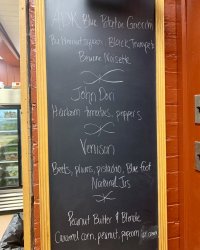 ADK Blue Potato Gnocchi
Butternut squash, Black Trumpets
Beurre Noisette
John Dori
Heirloom tomatoes, peppers
Venison
Beets, plums, pistachio, Blue foot
Natural Jus
Peanut Butter & Blondie
Caramel corn, peanut, popcorn ice cream